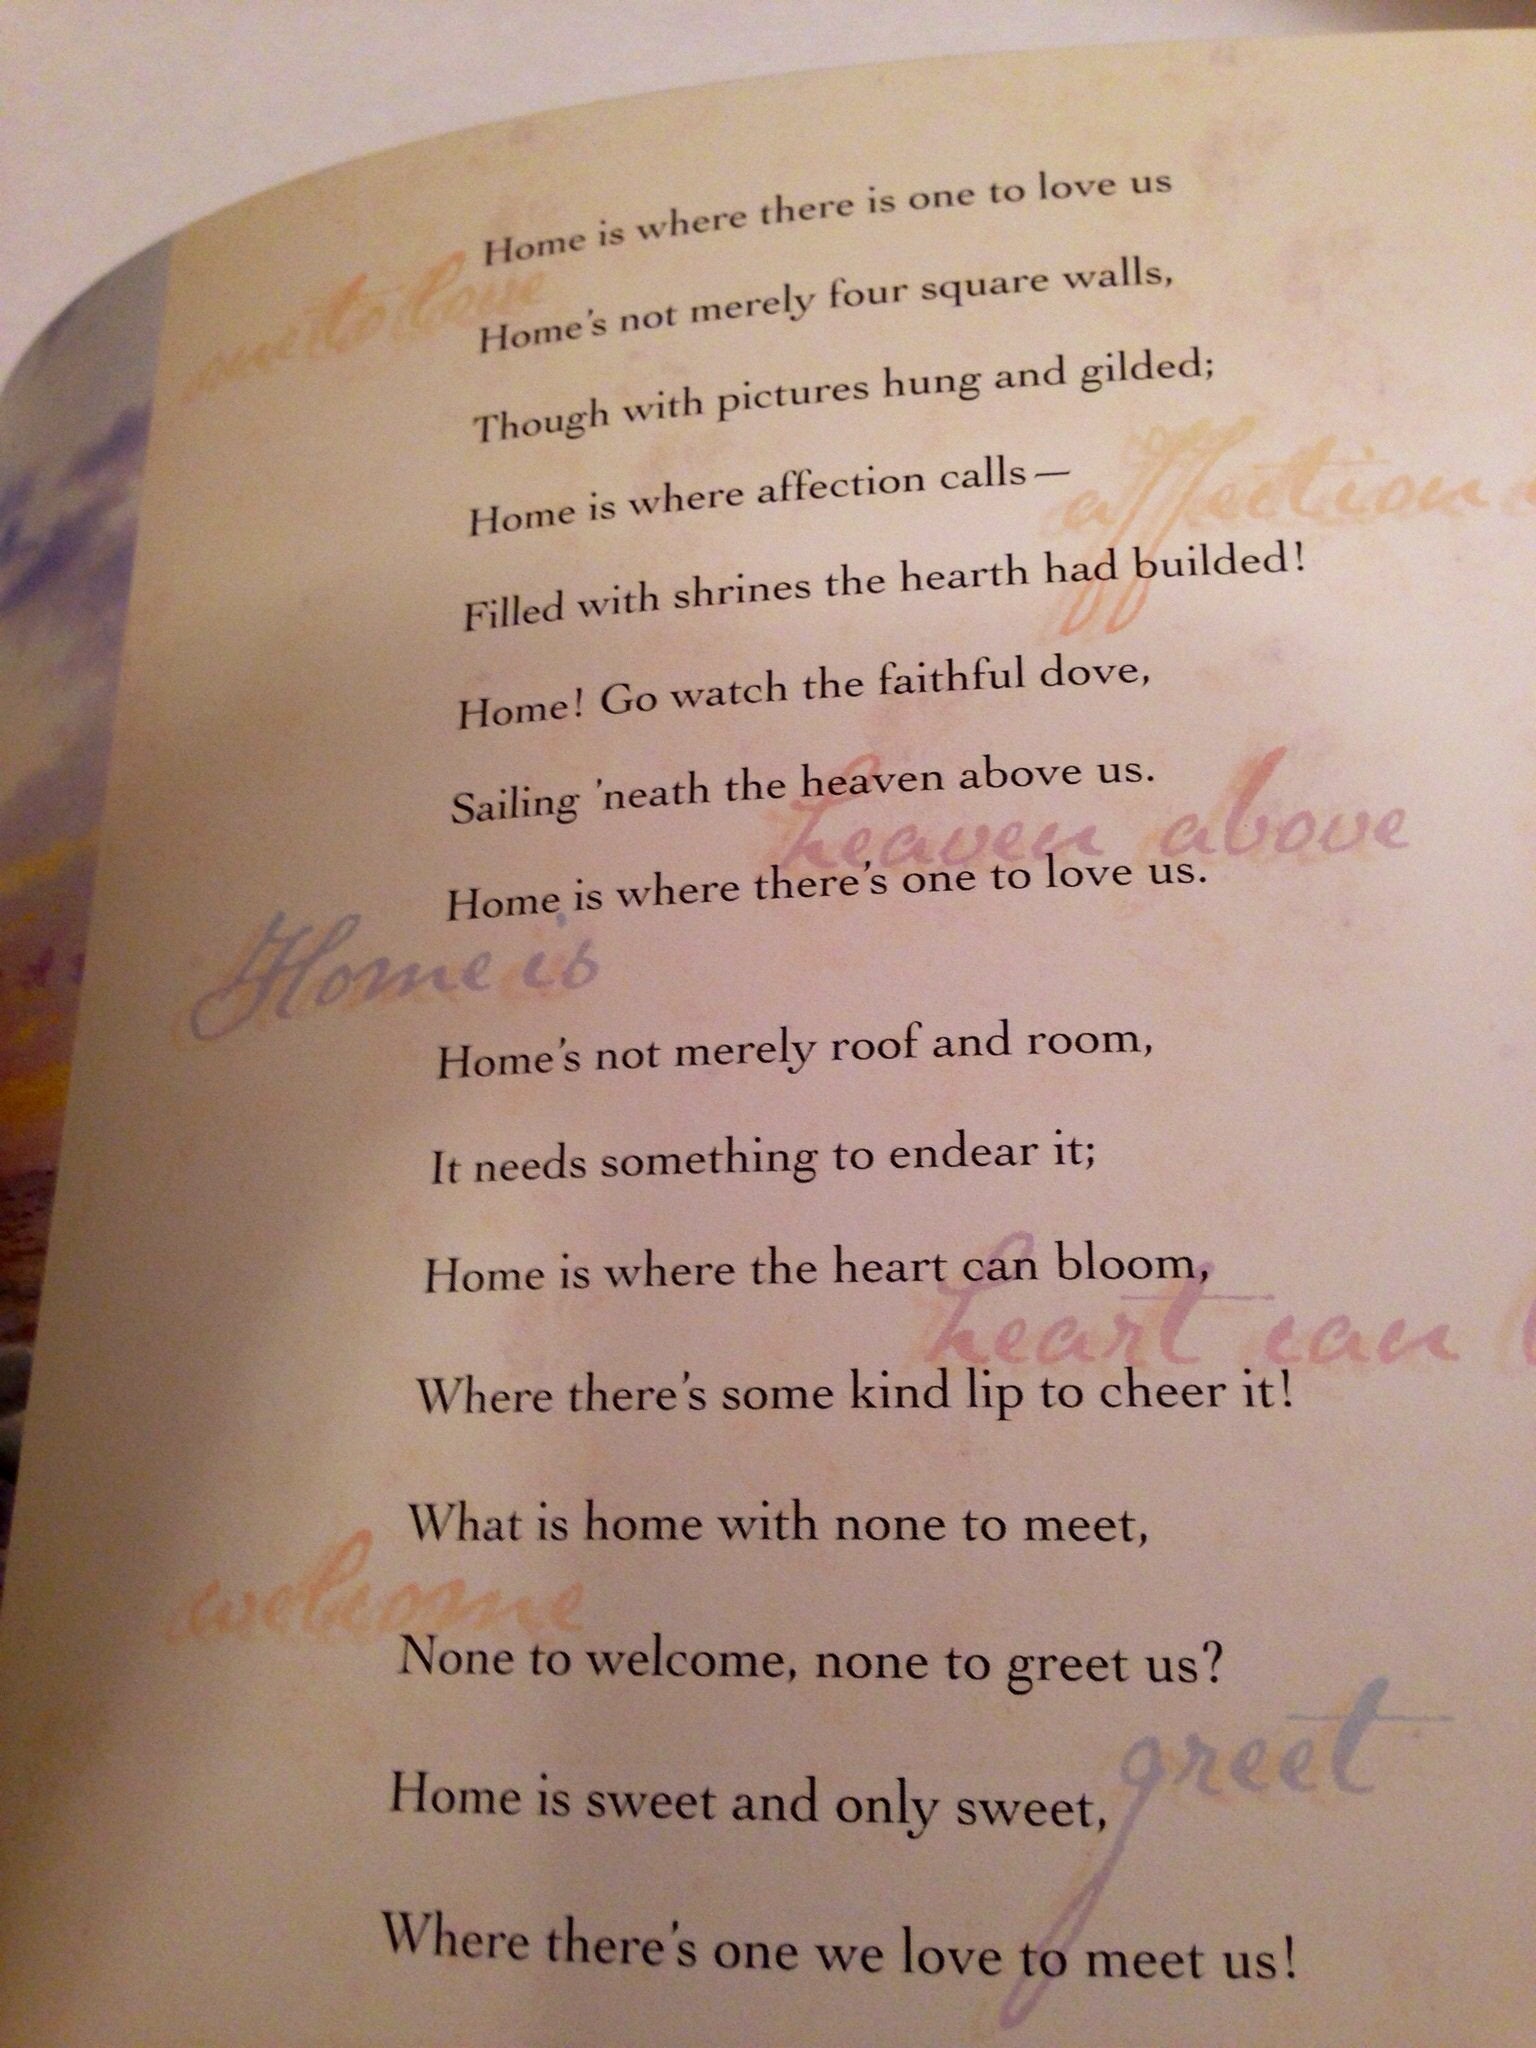 Home is where there is one to love us
one to love
Home's not merely four square walls,
Though with pictures hung and gilded;
Home is where affection calls—
affection
Filled with shrines the hearth had builded!
Home! Go watch the faithful dove,
Sailing 'neath the heaven above us.
heaven above
Home is where there's one to love us.
Home is
Home's not merely roof and room,
It needs something to endear it;
Home is where the heart can bloom,
heart can
Where there's some kind lip to cheer it!
What is home with none to meet,
welcome
None to welcome, none to greet us?
greet
Home is sweet and only sweet,
Where there's one we love to meet us!